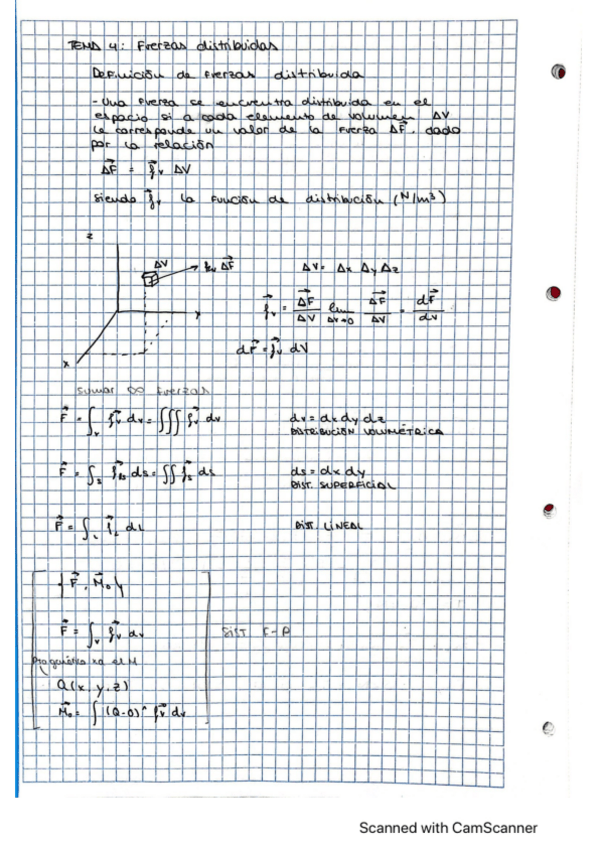 TEMA 4: Fuerzas distribuidas
Definición de fuerzas distribuida
- Una fuerza se encuentra distribuida en el
espacio si a cada elemento de volumen ΔV
le corresponde un valor de la fuerza ΔF⃗, dado
por la relación
ΔF⃗ = f⃗v ΔV
siendo f⃗v la función de distribución (N/m³)
z
ΔV
ΔF⃗
y
x
ΔV = Δx Δy Δz
f⃗v = ΔF⃗/ΔV lim ΔV→0 ΔF⃗/ΔV = dF⃗/dv
dF⃗ = f⃗v dV
sumar ∞ fuerzas
F⃗ = ∫v f⃗v dv = ∭ f⃗v dv
dv = dx dy dz
DISTRIBUCIÓN VOLUMÉTRICA
F⃗ = ∫s f⃗s ds = ∬ f⃗s ds
ds = dx dy
DIST. SUPERFICIAL
F⃗ = ∫L f⃗L dL
DIST. LINEAL
{F⃗, M⃗o}
F⃗ = ∫v f⃗v dv
SIST F-P
el M
Q(x, y, z)
M⃗o = ∫ (Q-O) ^ f⃗v dv
Scanned with CamScanner